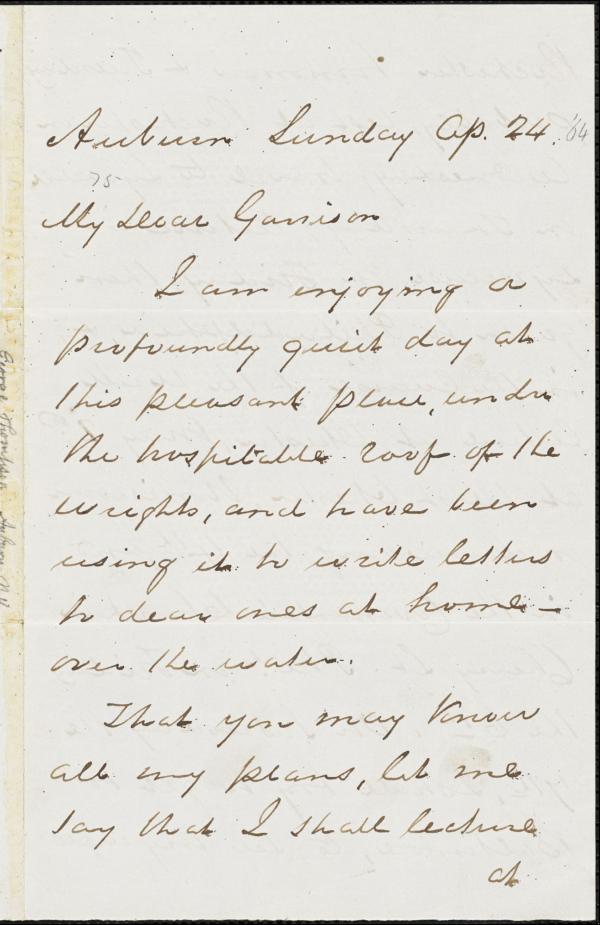 Auburn Sunday Ap. 24. '64
75
My Dear Garrison
I am enjoying a
profoundly quiet day at
this pleasant place, under
the hospitable roof of the
Wrights, and have been
using it to write letters
to dear ones at home—
over the water.
That you may know
all my plans, let me
say that I shall lecture
at
George Thompson Auburn N.Y.